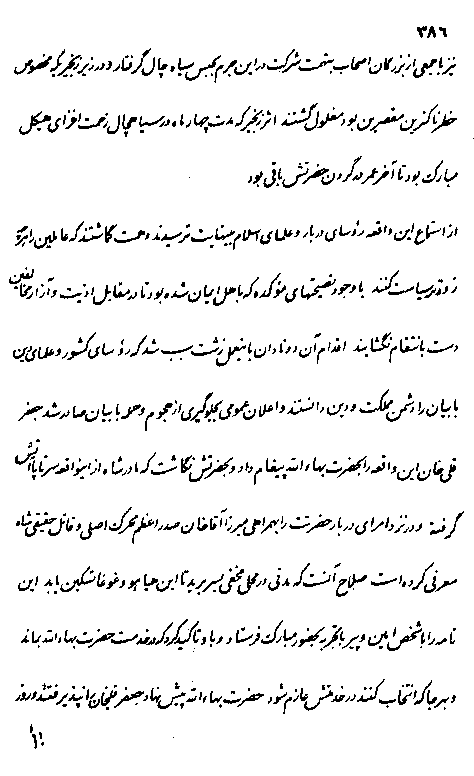 ۳۸۶
نیز با جمعی از بزرگان اصحاب بتهمت شرکت در این جرم بحبس سیاه چال گرفتار و در زیر زنجیر که مخصوص
خطرناکترین مقصرین بود مغلول گشتند اثر زنجیر که مدت چهار ماه در سیاهچال زحمت افزای هیکل
مبارک بود تا آخر عمر در گردن حضرتش باقی بود
از استماع این واقعه رؤسای دربار و علمای اسلام بینهایت ترسیدند و همت گماشتند که عاملین را
زودتر سیاست کنند با وجود نصیحتهای مؤکده که باهل ایمان شده بود تا در مقابل اذیت و آزار مخالفین
دست بانتقام نگشایند اقدام آن دو نادان باینعمل زشت سبب شد که رؤسای کشور و علمای دین
بابیان را دشمن مملکت و دین دانستند و اعلان عمومی بجلوگیری از هجوم و حمله بابیان صادر شد جعفر
قلی خان این واقعه را بحضرت بهاءالله پیغام داد و بحضرتش نگاشت که مادر شاه از اینواقعه سر تا پا آتش
گرفته و در نزد امرای دربار حضرتت را بهمراهی میرزا آقا خان صدر اعظم محرک اصلی و قاتل حقیقی شاه
معرفی کرده است صلاح آنست که مدتی در محلی مخفی بسر برید تا این هیاهو و غوغا تسکین یابد این
نامه را با شخص امین و پیر با تجربه بحضور مبارک فرستاد و باو تاکید کرد که در خدمت حضرت بهاءالله بماند
و بهر جا که انتخاب کنند در خدمتش عازم شود حضرت بهاءالله پیش نهاد جعفر قلیخان را نپذیرفتند و روز